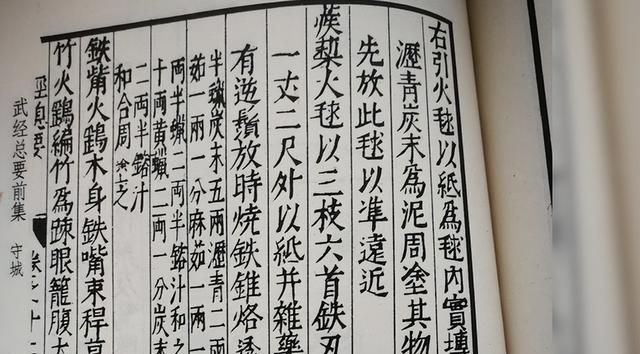 右引火毬以紙爲毬內實塼
瀝青炭末爲泥周塗其物
先放此毬以準遠近
蒺蔾火毬以三枝六首鉄刃
一丈二尺外以紙并雜藥
有逆鬚放時燒鉄錐烙透
半蠟炭末五两瀝青二两
茹一两一分麻茹一两一
两半蠟二两半鎔汁和之
十两黃蠟二两一分炭末
二两半鎔汁
和合周塗之
鉄觜火鷂木身鉄嘴束稈草
竹火鷂編竹爲疎眼籠腹大
武经总要前集 守城